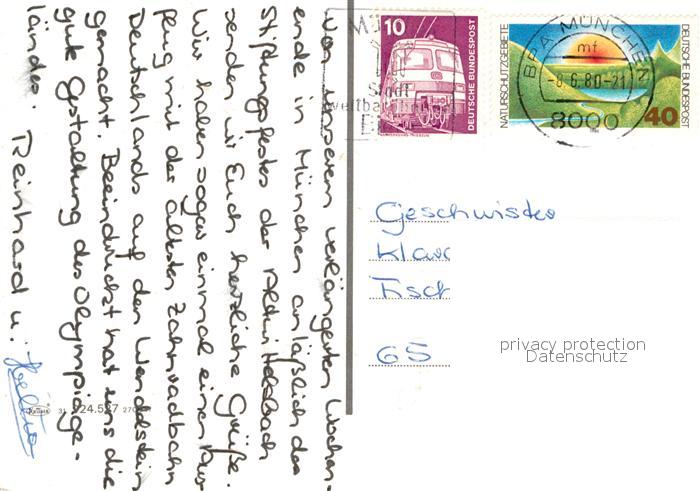 Von unserem verlängerten Wochen-
ende in München anläßlich des
Stiftungsfestes der
senden wir Euch herzliche Grüße.
Wir haben sogar einmal einen Aus-
flug mit der ältesten Zahnradbahn
Deutschlands auf den Wendelstein
gemacht. Beeindruckt hat uns die
gute Gestaltung des Olympiage-
ländes. Reinhard u.
31 924.527 270
10
DEUTSCHE BUNDESPOST
NATURSCHUTZGEBIETE
DEUTSCHE BUNDESPOST
40
BPA MÜNCHEN
mf
-6.6.80-21
8000
Stadt
Geschwister
Klar
Fisch
65
privacy protection
Datenschutz